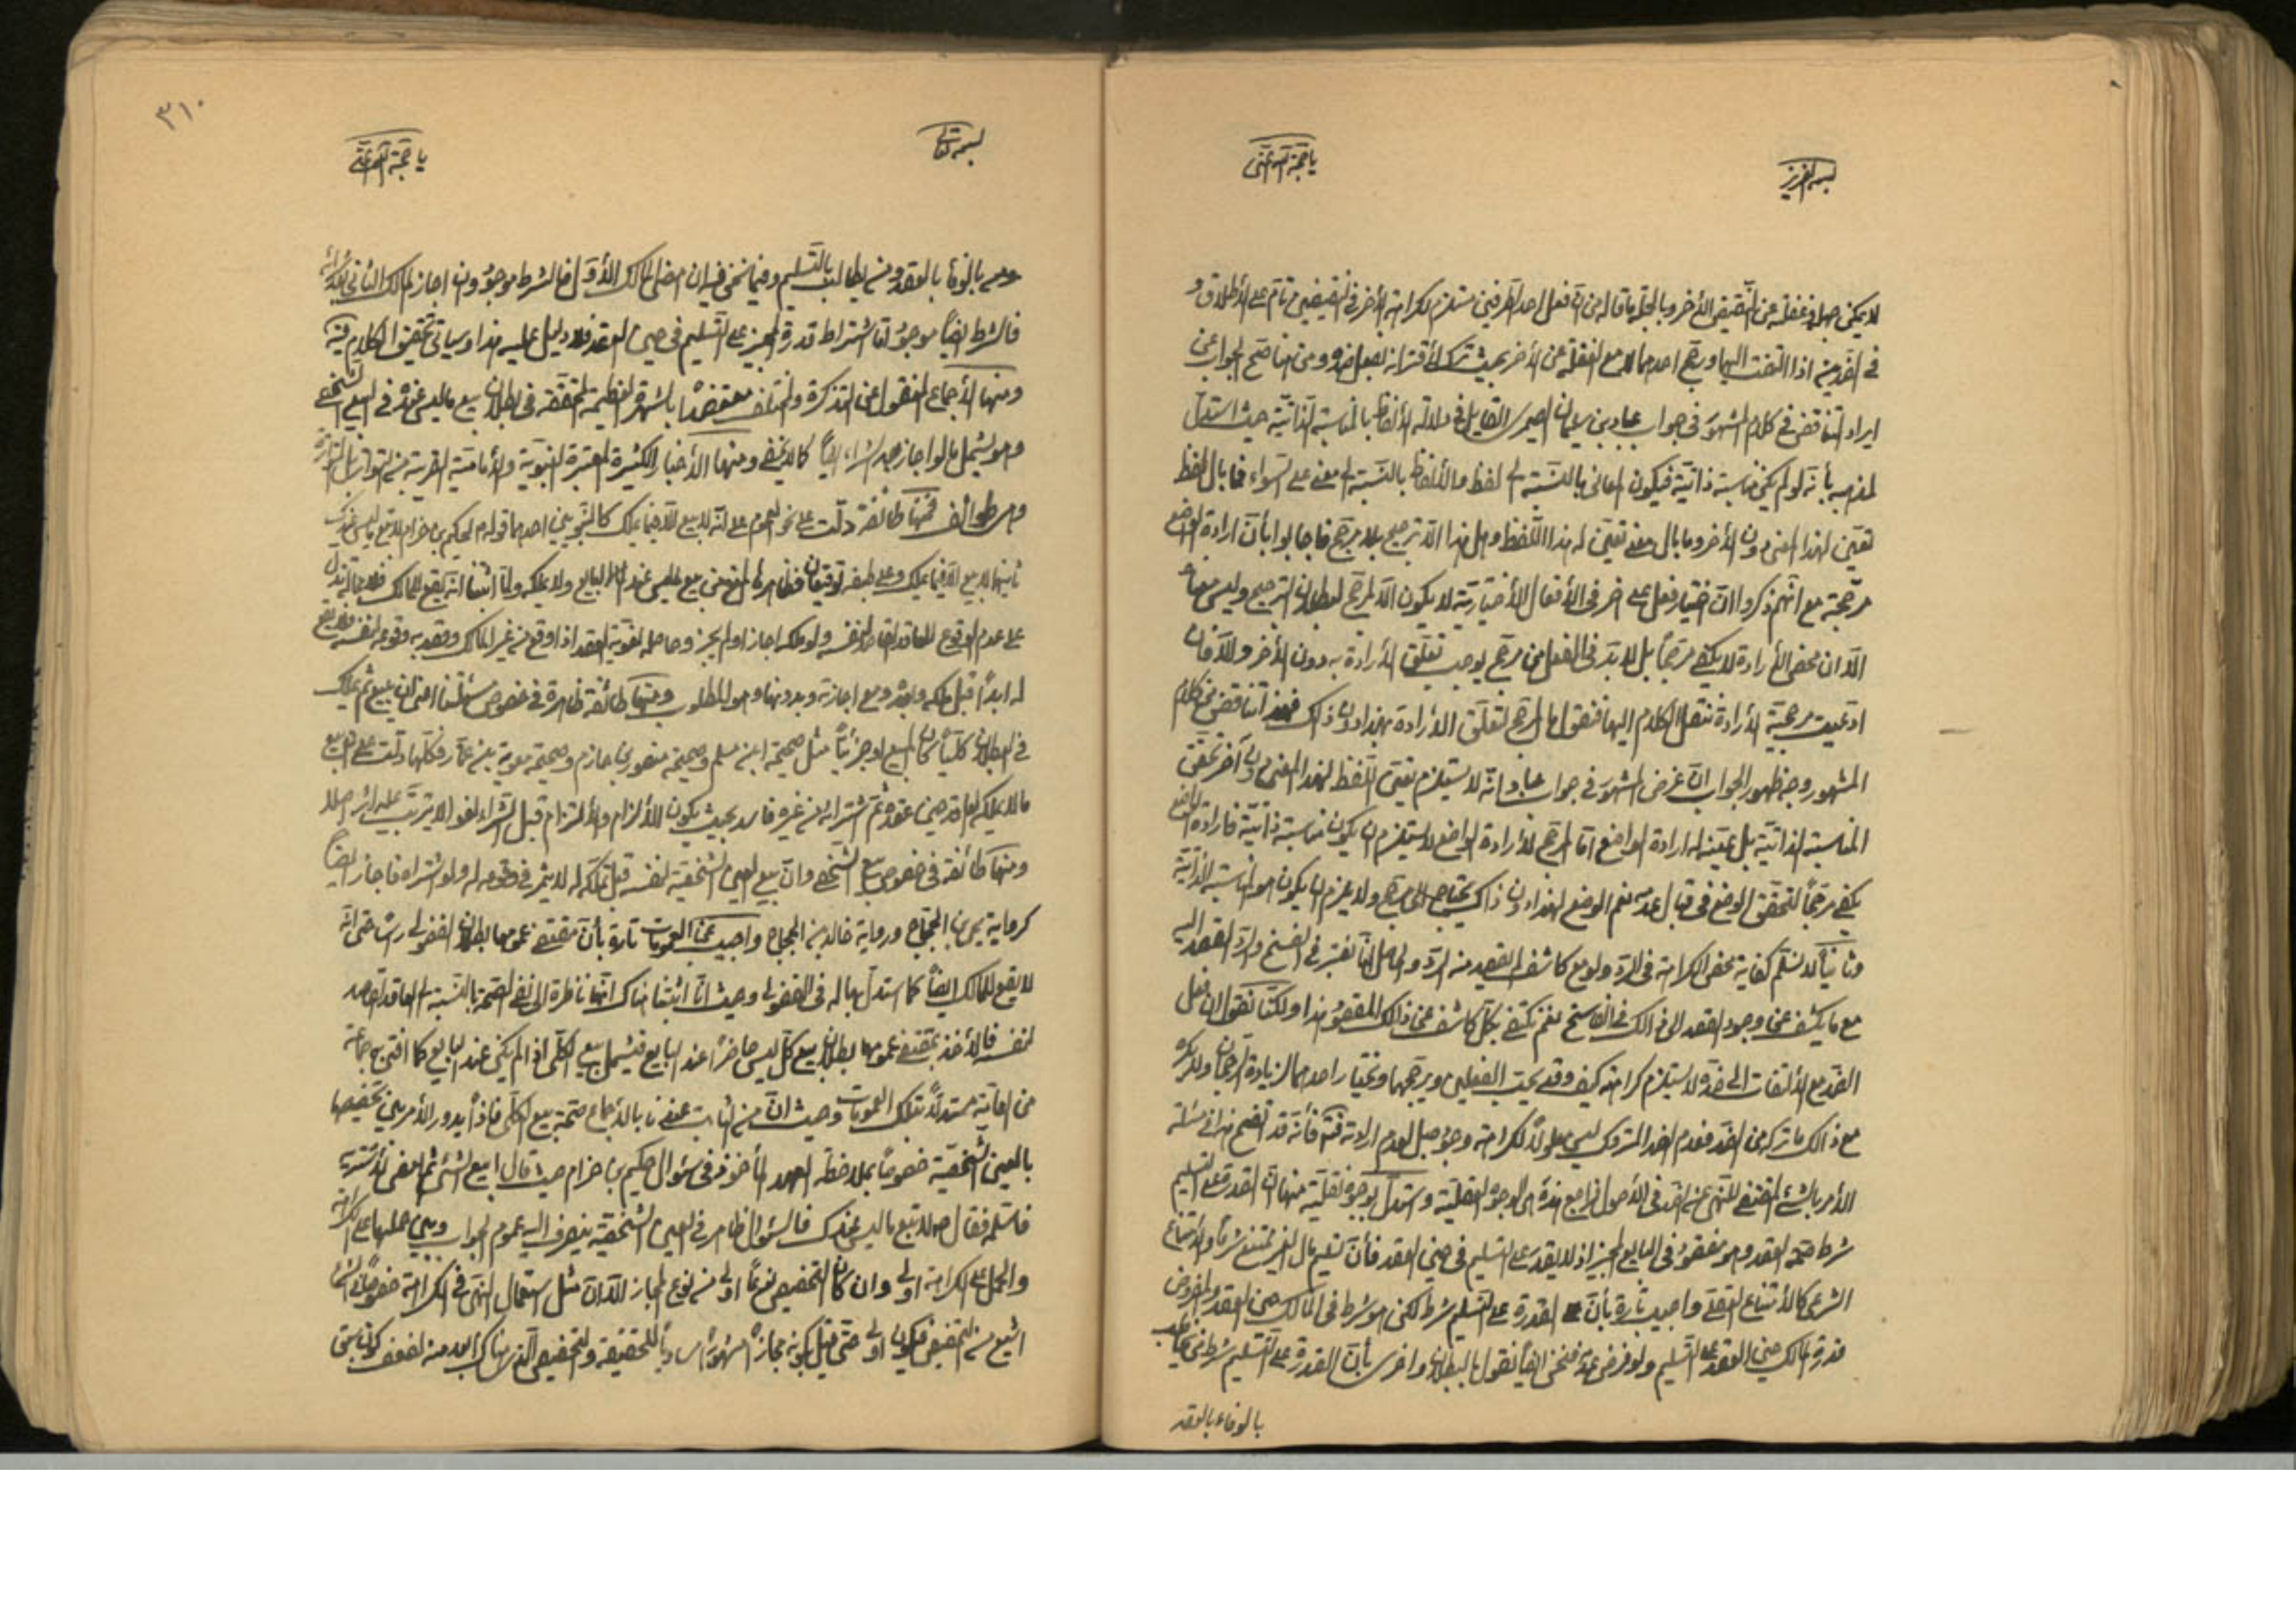 بسمه العزيز
يا حجة الله اغثنى
لا يمكن جهله وغفلته عن النقيض الأخر وبالجملة ما قاله من ان فعل احد الطرفين مستلزم لكراهة الأخر فى النقيضين تام على الأطلاق و
فى الضدين اذا التفت اليهما ورجح احدهما لا مع الغفلة عن الأخر بحيث ترك لأقترانه بفعل ضده ومن هنا صح الجواب عن
ايراد التناقض فى كلام المشهور فى جواب عباد بن سليمان الصيمرى القايل فى دلالة الألفاظ بالمناسبة الذاتية حيث استدل
لمذهبه بأنه لو لم يكن مناسبة ذاتية فيكون المعانى بالنسبة الى لفظ والألفاظ بالنسبة الى معنى على السواء فما بال لفظ
تعين لهذا المعنى دون الأخر وما بال معنى تعين له هذا اللفظ وهل هذا الا ترجيح بلا مرجح فاجابوا بأن ارادة الواضع
مرجحة مع انهم ذكروا ان اختيار فعل على اخر فى الأفعال الأختيارية لا يكون الا لمرجح لبطلان الترجيح وليس معناه
الا ان محض الأرادة لا يكفى مرجحا بل لا بد فى الفعل من مرجح يوجب تعلق الأرادة به دون الأخر والا فان
ادعيت مرجحية الأرادة ننقل الكلام اليها فنقول ما المرجح لتعلق الأرادة بهذا دون ذاك فهذا تناقض من كلام
المشهور وجه ظهور الجواب ان غرض المشهور فى جواب عباد انه لا يستلزم تعين اللفظ لهذا المعنى دون آخر تحقق
المناسبة الذاتية بل يعينه له ارادة الواضع اما المرجح لأرادة الواضع لا يستلزم ان يكون مناسبة ذاتية فارادة الواضع
يكفى مرجحا لتحقق الوضع فى قبال عدمه نعم الوضع لهذا دون ذاك يحتاج الى مرجح ولا يلزم ان يكون هو المناسبة الذاتية
وثانيا لا نسلم كفاية محض الكراهة فى الرد ولو مع كاشف القصد منه الرد والحاصل انا نعتبر فى الفسخ والرد القصد اليه
مع ما يكشف عن وجود القصد الى ذالك فى الفاسخ نعم نكتفى بكل كاشف عن ذالك المقصود هذا ولكنا نقول ان فعل
الضد مع الألتفات الى ضده لا يستلزم كراهته كيف وقد يحب الفعلين ويرجحهما ويختار احدهما لزيادة الرجحان ولا يكره
مع ذالك ما تركه من الضد فعدم الضد المتروك ليس معلولا لكراهة وجوده بل لعدم ارادته فتنبه فأنه قد اتضح هذا فى مسئلة
الأمر بالشئ المقتضى للنهى عن الضد فى الأصول فراجع هذه هى الوجوه العقلية واستدل بوجوه نقلية منها ان القدرة على التسليم
شرط صحة العقد وهو مفقود فى البايع المجيز اذ لا يقدر على التسليم فى حين العقد فأن تسليم مال الغير ممتنع شرعا والامتناع
الشرعى كالأمتناع العقلى واجيب تارة بأن القدرة على التسليم شرط لكن هو شرط فى المالك حين العقد والمفروض
قدرة المالك حين العقد على التسليم ولو فرض عدمه فنحن ايضا نقول بالبطلان واخرى بأن القدرة على التسليم شرط فى
بالوفاء بالعقد
٣١٠
بسمه تعالى
يا حجة الله اغثنى
بالوفاء بالعقد ومن يطالب بالتسليم وفيما نحن فيه ان امضى المالك الأول فالشرط موجود وان اجاز المالك الثانى بعد شرائه
فالشرط ايضا موجود اما اشتراط قدرة المجيز على التسليم فى حين العقد فلا دليل عليه هذا وسياتى تحقيق الكلام فيه
ومنها الأجماع المنقول عن التذكرة والمختلف معتضدا بالشهرة العظيمة المحققة فى بطلان بيع ما ليس عنده فى البيع الشخصى
وهو يشمل ما لو اجاز بعد شرائه ايضا كما لا يخفى ومنها الأخبار الكثيرة المعتبرة النبوية والأمامية القريبة من التواتر
وهى طوائف فمنها طائفة دلت على نحو العموم على انه لا بيع الا فيما يملك كالنبويين احدهما قوله لحكيم بن حزام لا تبع ما ليس عندك
ثانيهما لا بيع الا فيما يملك وعلى طبقه توقيعان فظاهره المنع من بيع ما ليس عند البايع ولا يملكه ولما اثبتنا انه يقع للمالك
على عدم الوقوع للعاقد القاصد لنفسه ولو ملكه اجاز او لم يجز وحاصله لغوية العقد اذا وقع من غير المالك وقصد به وقوعه لنفسه
له ابدا قبل ملكه وبعده ومع اجازته وبدونها وهو المطلوب ومنها طائفة ظاهرة فى خصوص مسئلتنا اعنى ان يبيع ثم يملك
فى البطلان كليا كان المبيع او جزئيا مثل صحيحة ابن مسلم وصحيحة منصور بن حازم وصحيحة معوية بن عمار فكلها دلت على ان بيع
ما لا يملكه العاقد حين عقده ثم اشترائه من غيره فاسد بحيث يكون الألزام والألتزام قبل الشراء لغوا لا يترتب عليه اثر اصلا
ومنها طائفة فى خصوص بيع الشخصى وان بيع العين الشخصية لنفسه قبل تملكه له لا يثمر فى وقوعه له ولو اشتراه فاجاز ايضا
كرواية يحيى بن الحجاج ورواية خالد بن الحجاج واجيب عن العمومات تارة بأن مقتضى عمومها بطلان الفضولى راسا حتى انه
لا يقع للمالك ايضا كما استدل بها له فى الفضولى وحيث انا اثبتنا هناك انها ناظرة الى نفى الصحة بالنسبة الى العاقد القاصد
لنفسه فالأخذ بمقتضى عمومها بطلان بيع كل ليس حاضرا عند البايع فيشمل بيع الكلى اذا لم يكن عند البايع كما افتى به جماعة
من العامة مستدلا بتلك العمومات وحيث ان من الثابت عندنا بالأجماع صحة بيع الكلى فاذا يدور الأمر بين تخصيصها
بالعين الشخصية خصوصا بملاحظة العهد المأخوذ فى سؤال حكيم بن حزام حيث قال ابيع الشئ ثم امضى لأشتريه
فاسلمه فقال ص لا تبع ما ليس عندك فالسؤال ظاهر فى العين الشخصية ينصرف اليه عموم الجواب وبين حملها على الكراهة
والحمل على الكراهة اولى وان كان التخصيص نوعا اولى من نوع المجاز الا ان مثل استعمال النهى فى الكراهة خصوصا
اشيع من التخصيص فيكون اولى حتى قيل بكونه مجازا مشهورا مساويا للحقيقة والتخصيص الذى هناك ابعد منه لضعف